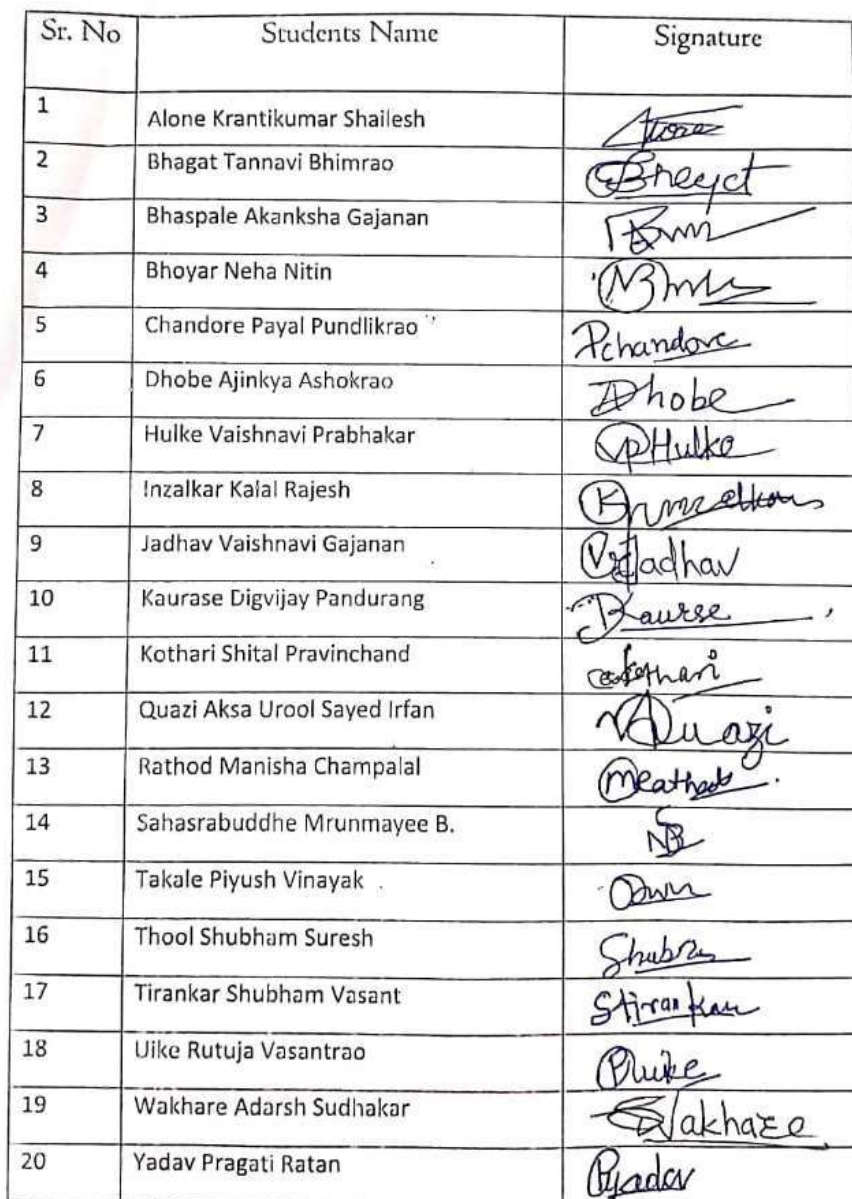 Sr. No Students Name Signature
1 Alone Krantikumar Shailesh
2 Bhagat Tannavi Bhimrao Bhagat
3 Bhaspale Akanksha Gajanan
4 Bhoyar Neha Nitin
5 Chandore Payal Pundlikrao Pchandore
6 Dhobe Ajinkya Ashokrao ADhobe
7 Hulke Vaishnavi Prabhakar VPHulke
8 Inzalkar Kalal Rajesh
9 Jadhav Vaishnavi Gajanan VGJadhav
10 Kaurase Digvijay Pandurang
11 Kothari Shital Pravinchand
12 Quazi Aksa Urool Sayed Irfan AQuazi
13 Rathod Manisha Champalal
14 Sahasrabuddhe Mrunmayee B.
15 Takale Piyush Vinayak
16 Thool Shubham Suresh
17 Tirankar Shubham Vasant Stirankar
18 Uike Rutuja Vasantrao
19 Wakhare Adarsh Sudhakar Wakhare
20 Yadav Pragati Ratan Pyadav